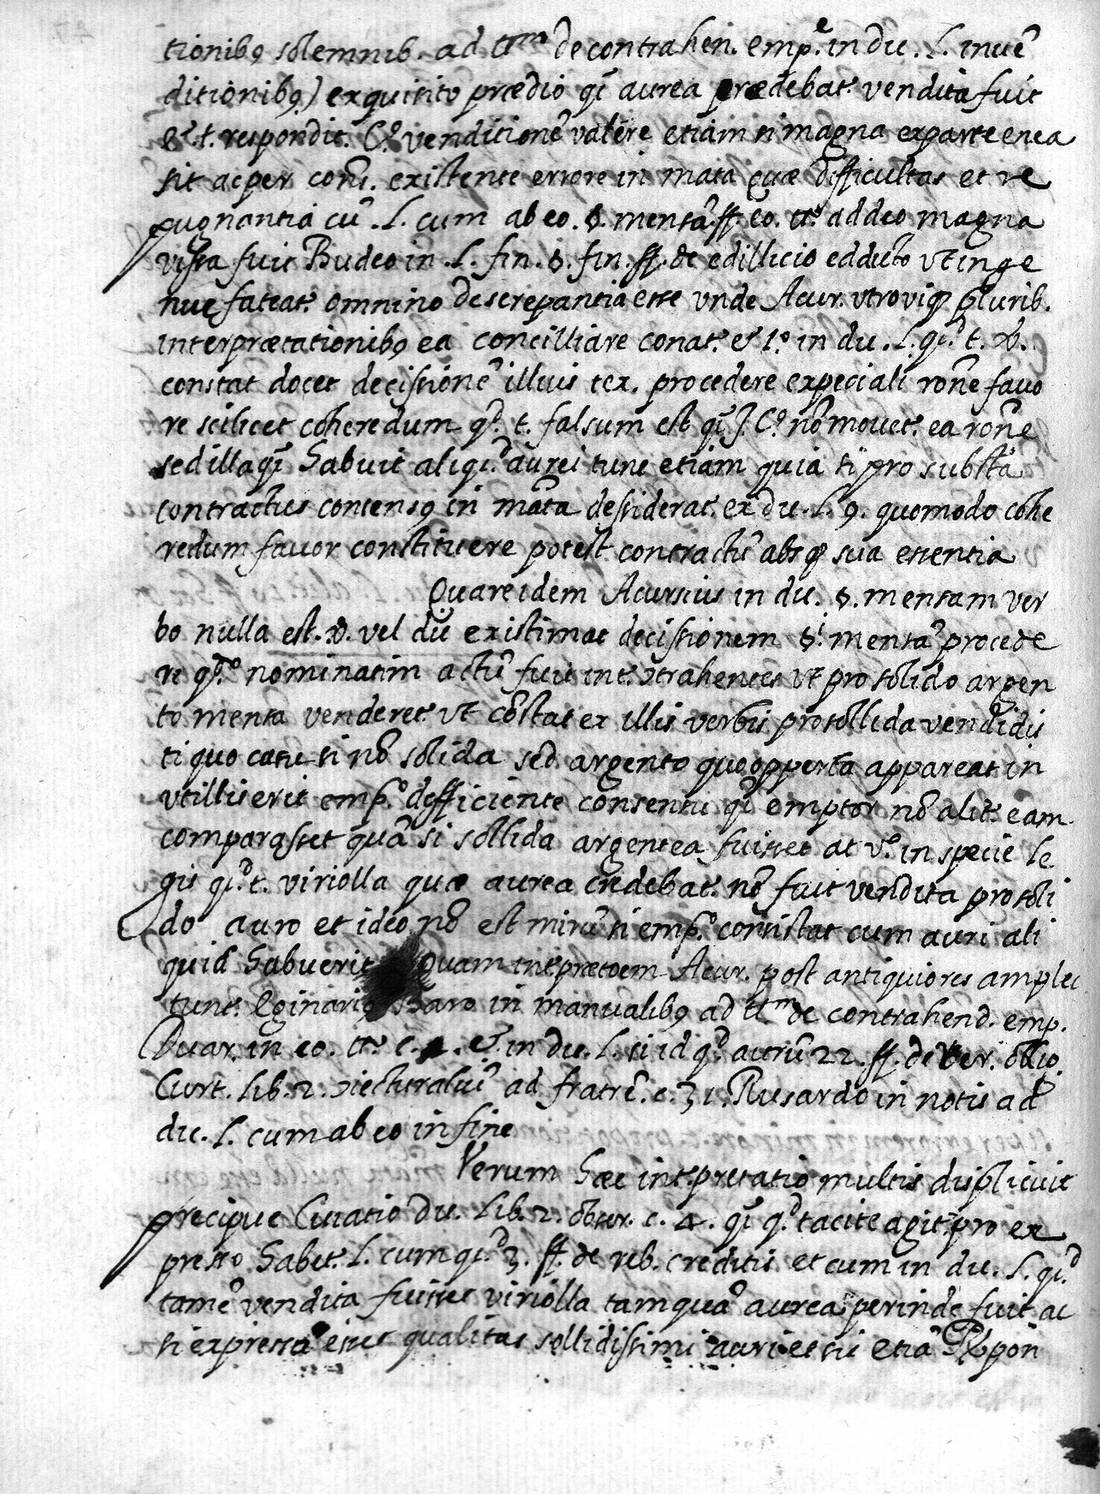 tionibꝰ solemnib. ad ttm de contrahen. empe. in du. L. inuẽ
ditionibꝰ) exquisito prædio qꝫ aurea prædebat. vendita fuit
&. t. respondit. Co. venditionẽ valere etiam si magna exparte enea
sit ac per cons. existente errore in mata quæ difficultas et re
pugnantia cũ. L. cum ab eo. §. mensã. ff. eo. tt. addeo magna
vissa fuit Budeo in. L. fin. §. fin. ff. de edillicio edducto vt inge
nue fateat. omnino descrepantia esse vnde Acur. vtroviqꝫ plurib.
interprætationibꝰ ea concilliare conat. et 1o. in du. L. qd. t. V.
constat docet decissionẽ illius tex. procedere ex speciali rõne favo
re scilicet coheredum qd. t. falsum est qꝫ J. Co. nõ mouet. ea rõne
sed illa qꝫ habuit aliqd. aurei tunc etiam quia si pro substã
contractus consensꝰ in mãta dessiderat. ex du. L. 9. quomodo cohe
redum favor constituere potest contractũ absqꝫ sua essentia
Quare idem Acursius in du. §. mensam ver
bo nulla est. V. vel du existimat decissionem §i. mensã procede
re qdo. nominatim actũ fuit int. ɔtrahentes vt pro solido argen
to mensa venderet. vt cõstat ex illis verbis pro sollida vendidis
ti quo casu si nõ solida sed argento quoopperta appareat in
vtillis erit empo. defficiente consensu qꝫ emptor nõ alit. eam
comparasset quã si sollida argentea fuisset at vo. in specie le
gis qd. t. viriolla quæ aurea credebat. nõ fuit vendita pro soli
do auro et ideo nõ est mirũ si empo. consistat cum auri ali
quid habuerit Quam intepræto͂em Acur. post antiquiores amplec
tunt. Eginariꝰ Baro in manualibꝰ ad ttm de contrahend. emp.
Duar. in eo. tt. c. 2. et in du. L. si id qd aurũ 22. ff. de Ver. oblig.
Curt. lib. 2. ɔiecturaliũ ad fratrẽ. c. 31. Rusardo in notis ad
dic. L. cum ab eo in fine
Verum hæc intepretatio multis displicuit
precipue Cuiatio du. Lib. 2. obser. c. 4. qꝫ qd tacite agit. pro ex
presso habet. L. cum qd 3. ff. de reb. creditis et cum in du. L. qd.
tamẽ vendita fuisset viriolla tamquã aurea perinde fuit ac
si expressa esset qualitas sollidissimi auri et sic etiã Pꝶpon